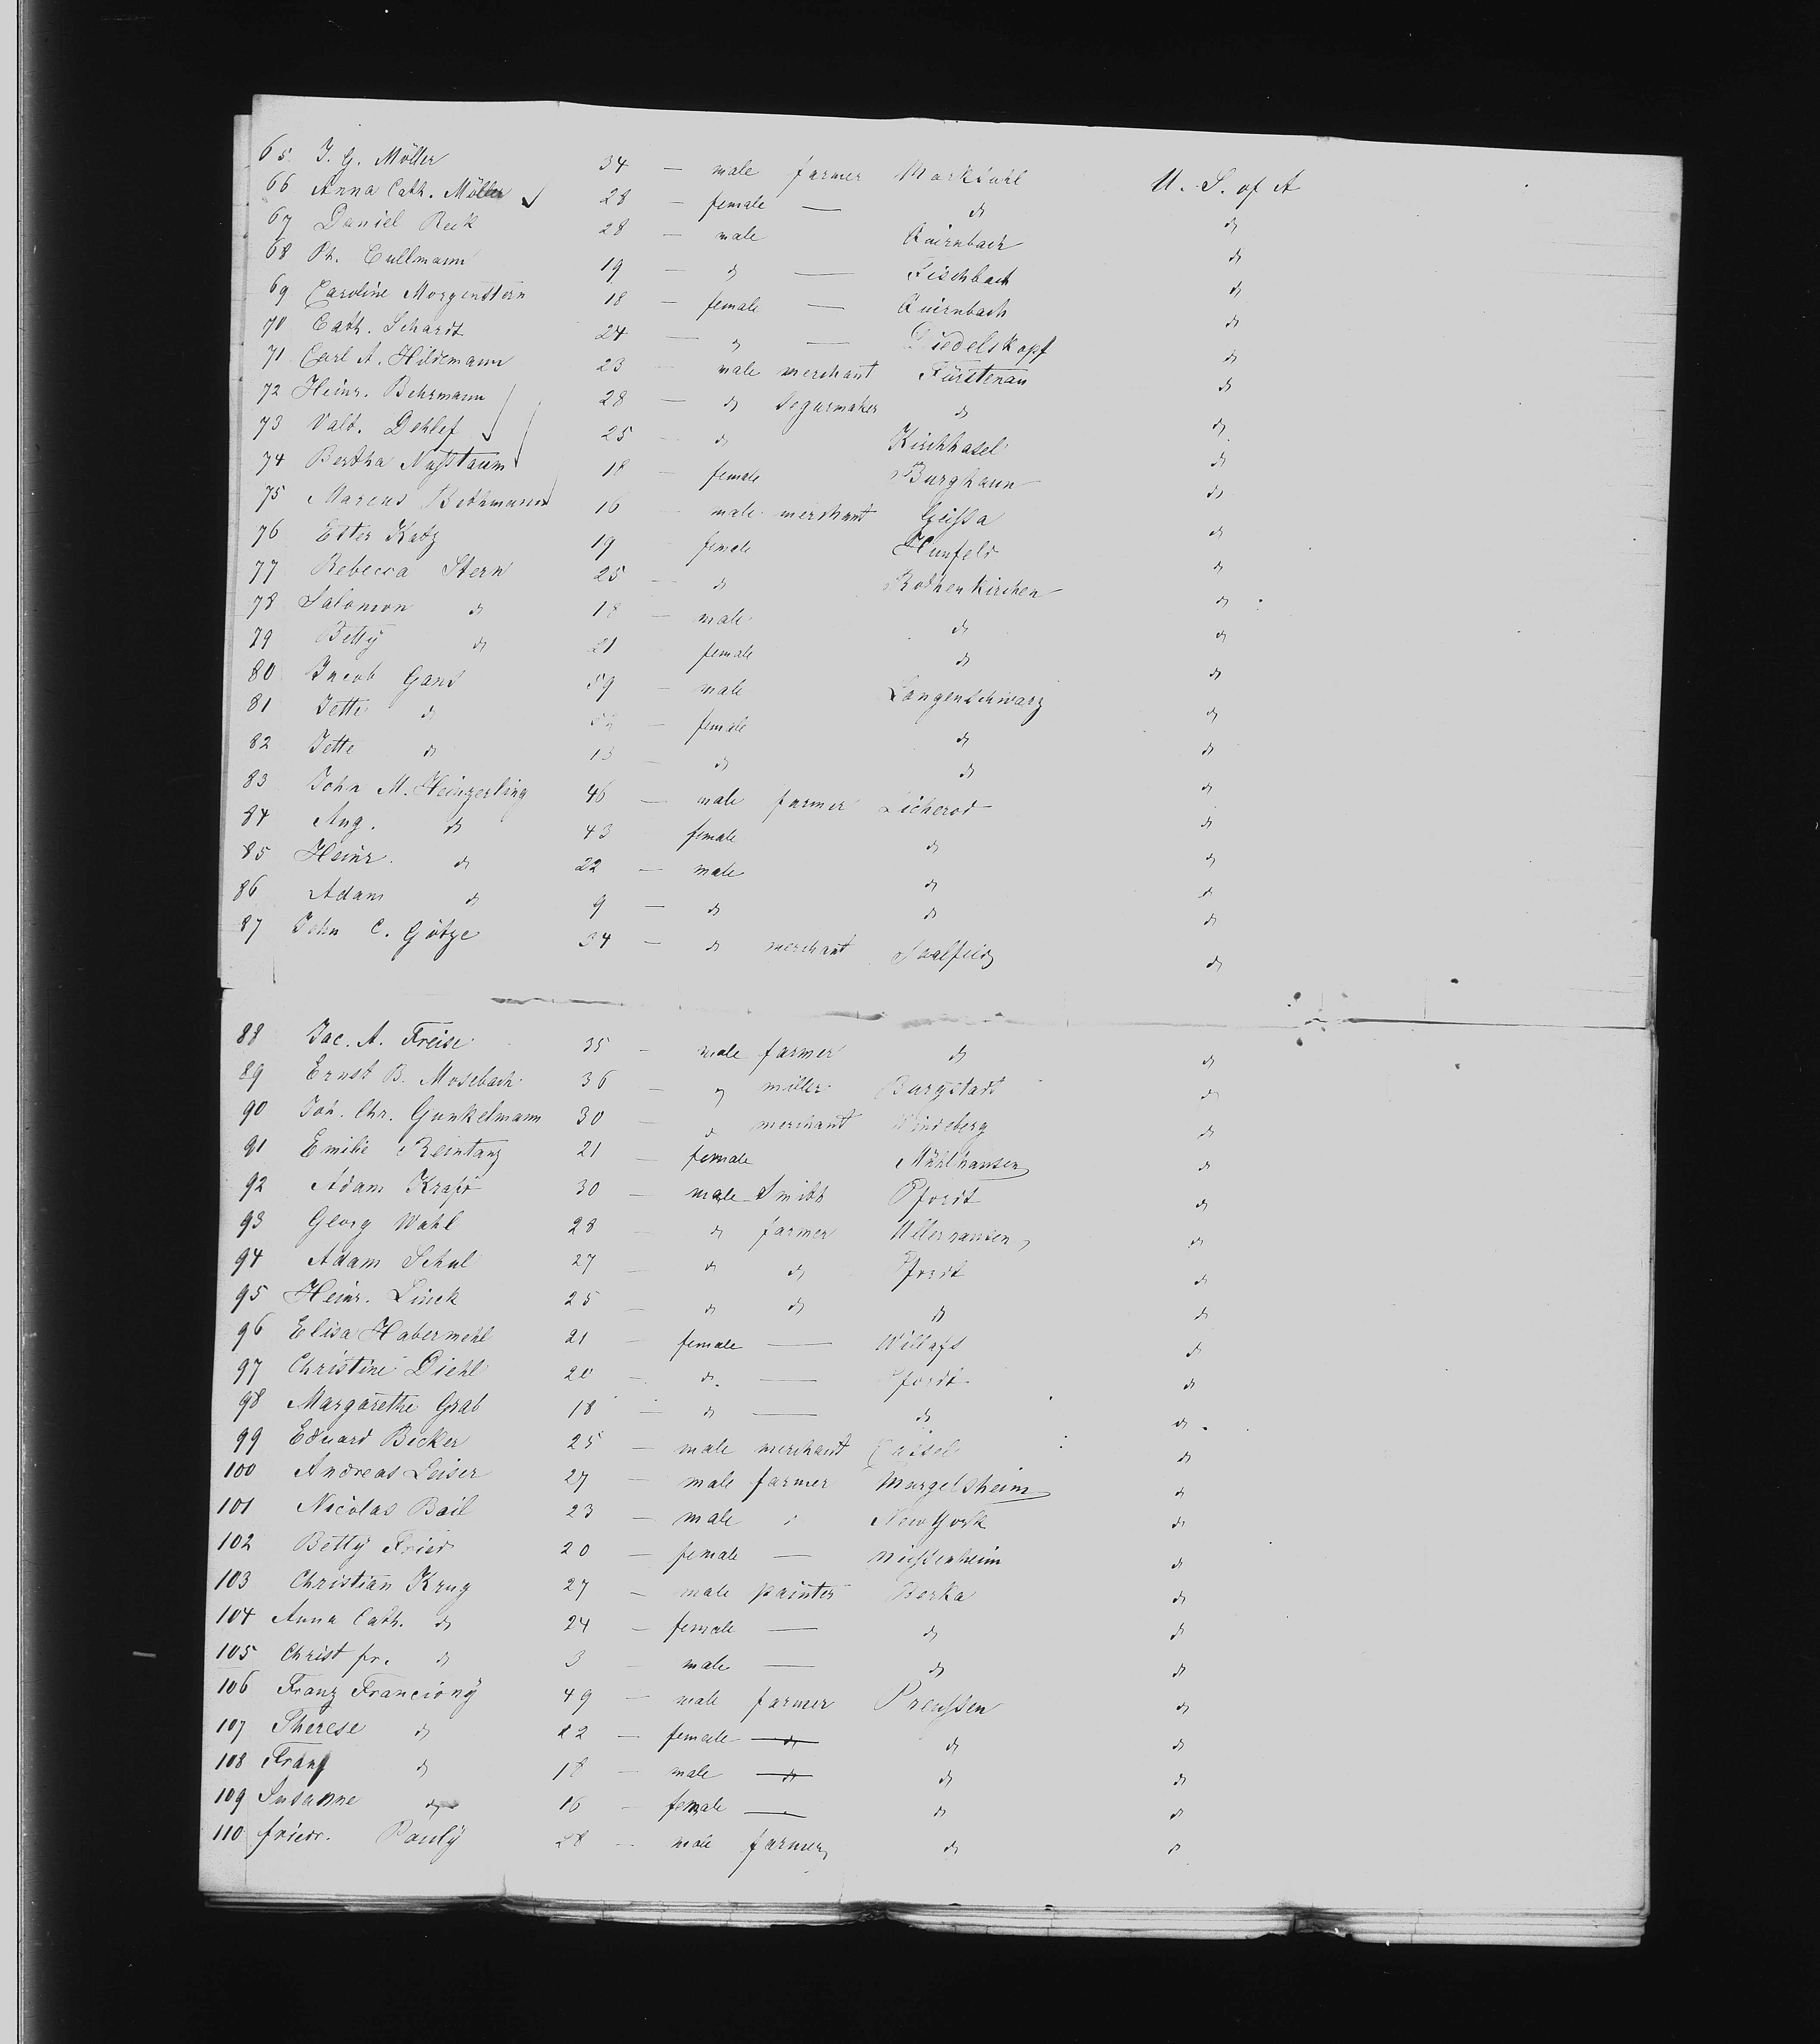 65 J. G. Möller 34 — male farmer Marksuhl U. S. of A
66 Anna Cath. Möller 28 — female — do do
67 Daniel Beck 28 — male Quirnbach do
68 Ph. Cullmann 19 — do — Fischbach do
69 Caroline Morgenstern 18 — female — Quirnbach do
70 Cath. Schardt 24 — do — Diedelskopf do
71 Carl A. Hildemann 23 male merchant Fürstenau do
72 Heinr. Behrmann 28 — do Segarmaker do do
73 Vald. Dehlef 25 — do Kirchhasel do
74 Bertha Nußbaum 18 — female Burghaun do
75 Marcus Bethmann 16 male merchant Geißa do
76 Ester Katz 19 — female Hunfeld do
77 Rebecca Stern 25 — do Rothenkirchen do
78 Salomon do 18 — male do do
79 Betty do 21 female do do
80 Jacob Gans 59 — male Langenschwarz do
81 Jette do — female do do
82 Jette do 13 — do do do
83 John M. Heinzerling 46 — male farmer Licherod do
84 Aug. do 43 female do do
85 Heinr. do 22 — male do do
86 Adam do 9 — do do do
87 John C. Götze 34 — do merchant Saalfield do
88 Jac. A. Freise 35 — male farmer do do
89 Ernst B. Mosebach 36 — do miller Burgstadt do
90 Joh. Chr. Gunkelmann 30 — do merchant Windeberg do
91 Emilie Reintanz 21 — female Mühlhausen do
92 Adam Kraft 30 — male Smith Pfordt do
93 Georg Wahl 28 — do farmer Ullershausen do
94 Adam Schul 27 — do do Pfordt do
95 Heinr. Linck 25 — do do do do
96 Elisa Habermehl 21 — female — Willofs do
97 Christine Diehl 20 — do — Pfordt do
98 Margarethe Grab 18 — do — do do
99 Eduard Becker 25 — male merchant Cassel do
100 Andreas Leiser 27 — male farmer Mergelsheim do
101 Nicolas Bail 23 — male New York do
102 Betty Fried 20 — female — do
103 Christian Krug 27 — male painter Berka do
104 Anna Cath. do 24 — female — do do
105 Christ fr. do 3 — male — do do
106 Franz Franciony 49 — male farmer Preußen do
107 Therese do 22 — female do do do
108 Franz do 18 — male do do do
109 Susanne do 16 — female — do do
110 friedr. Pauly 28 — male farmer do do